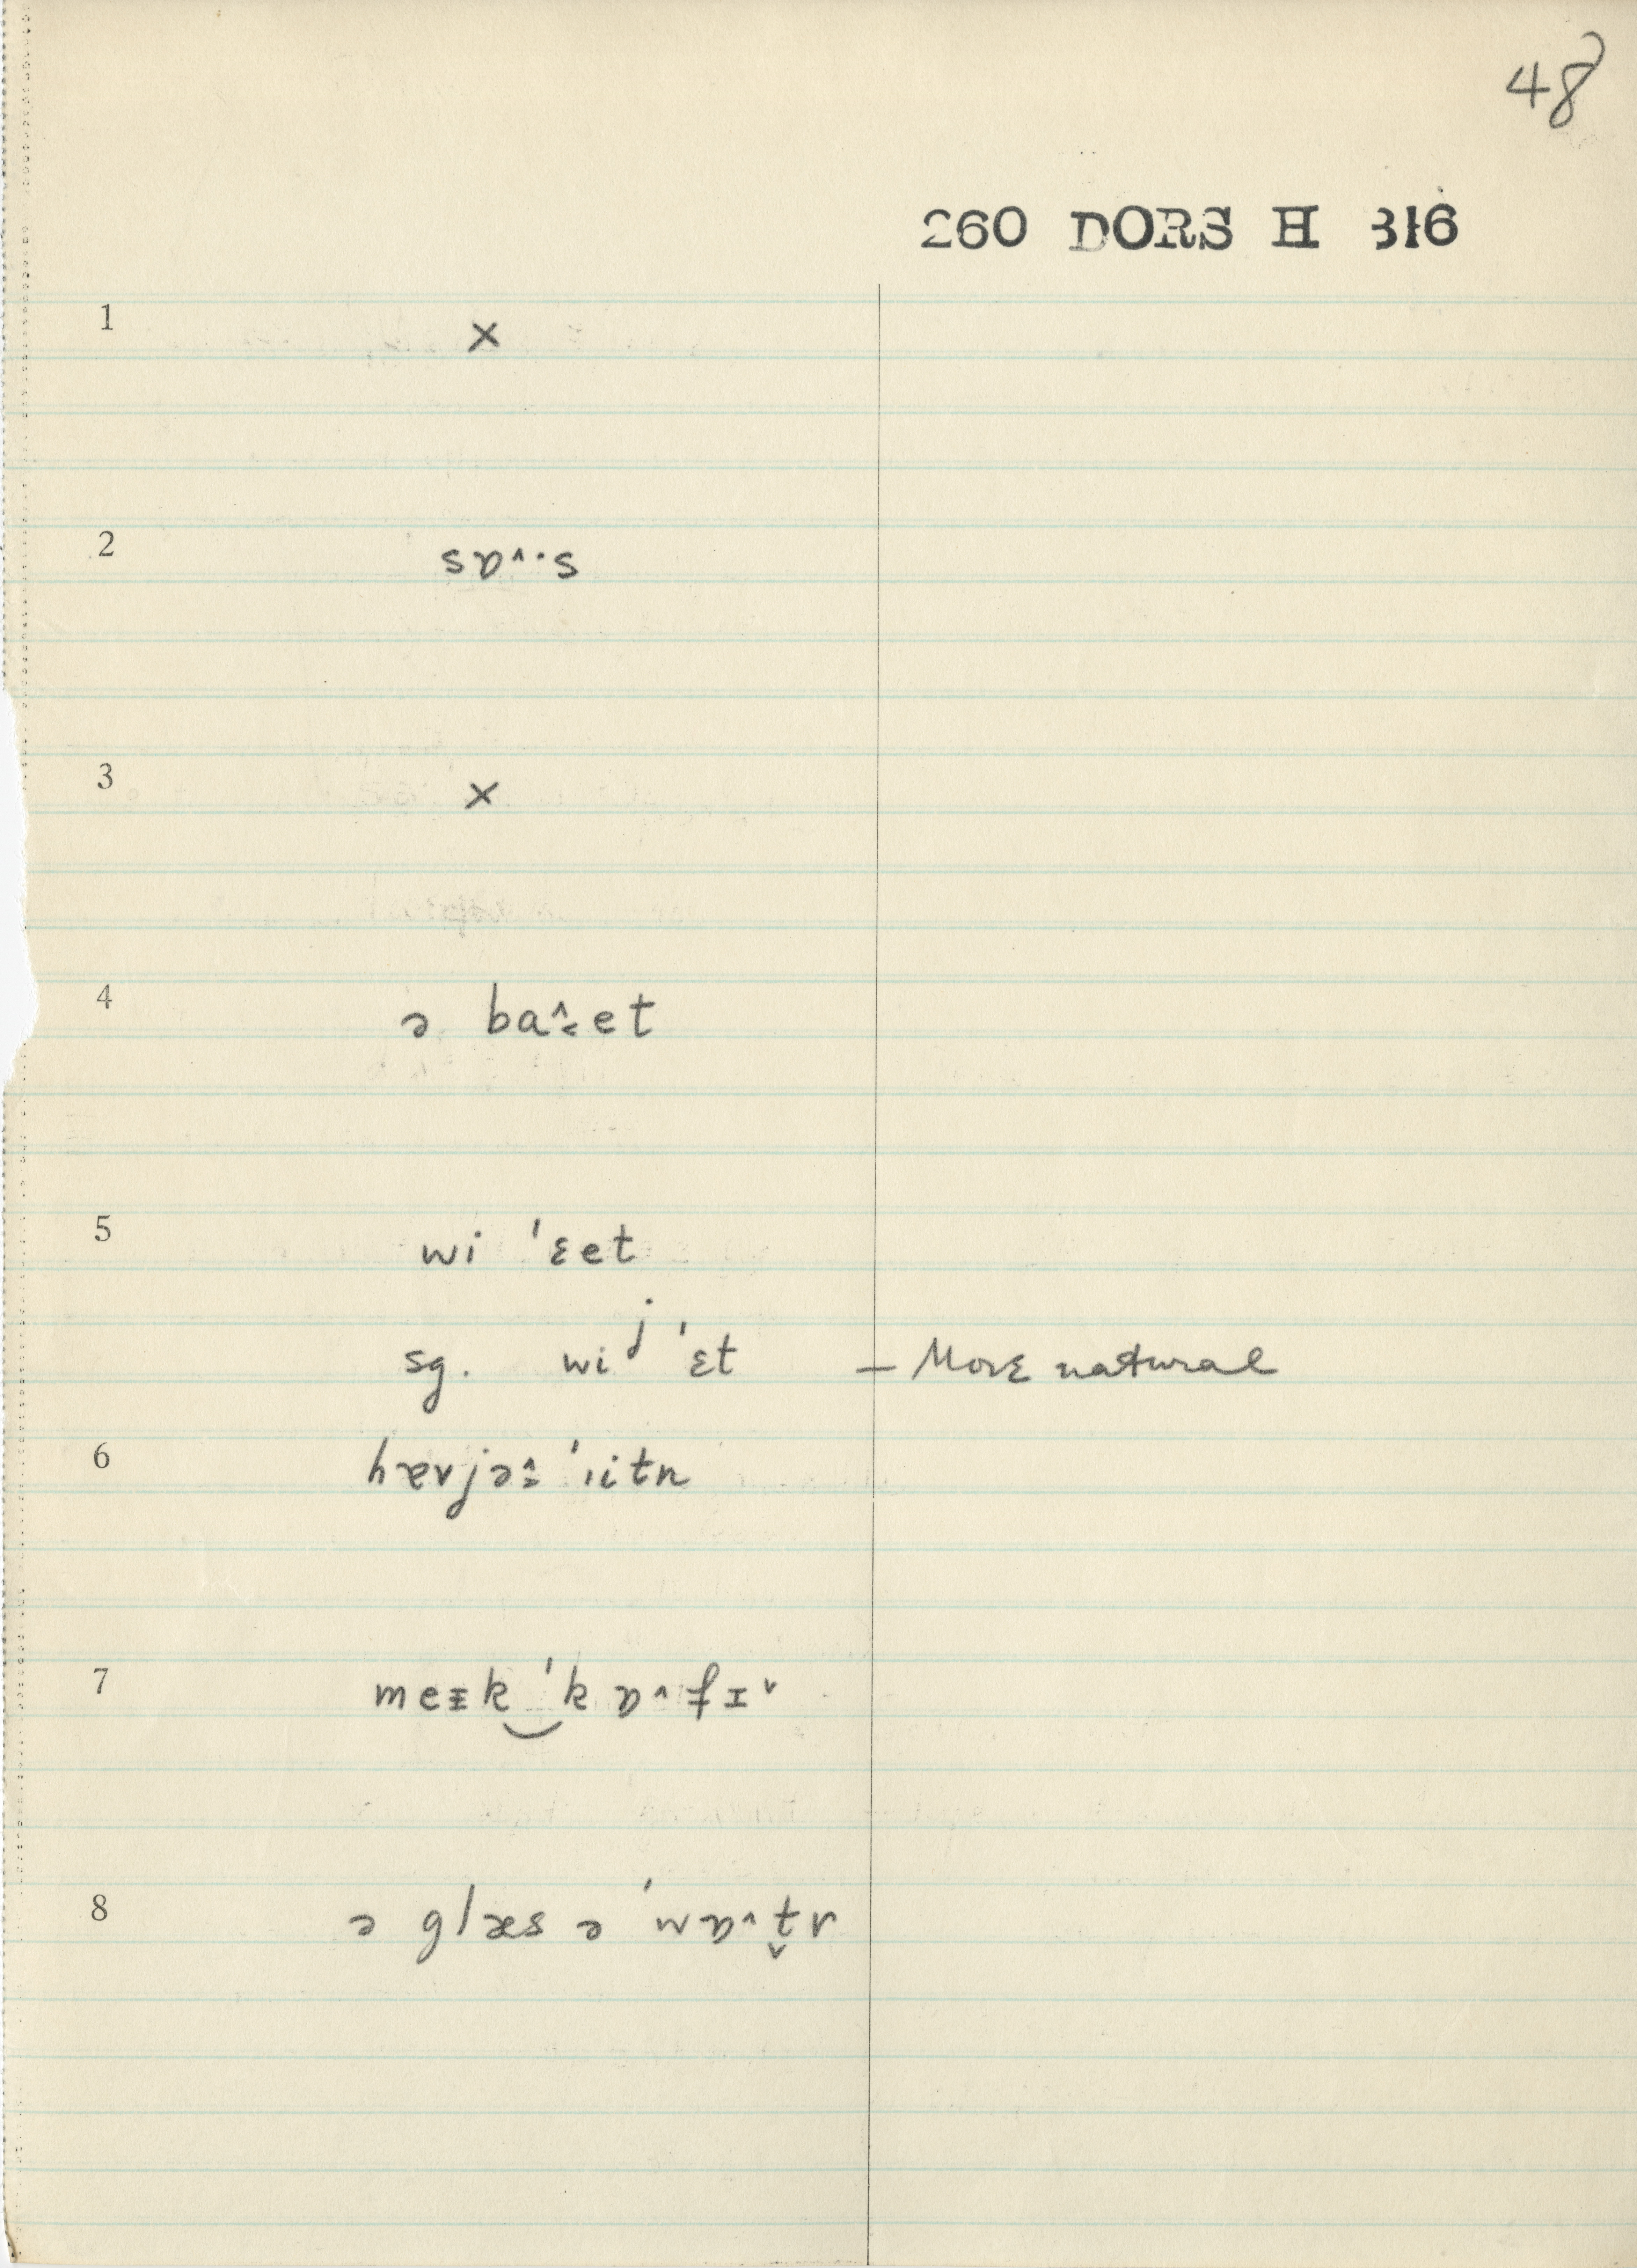 48
260 DORS H 316
1 ×
2 sɒ˄·s
3 ×
4 ə ba˄˂et
5 wi ˈɛet
sg. wiʲ ˈɛt – More natural
6 hævjə˄˭ ˈɪitn
7 meɪk‿ˈkɒ˄fɪ˅
8 ə glæs ə ˈwɒ˄t̬ɚ